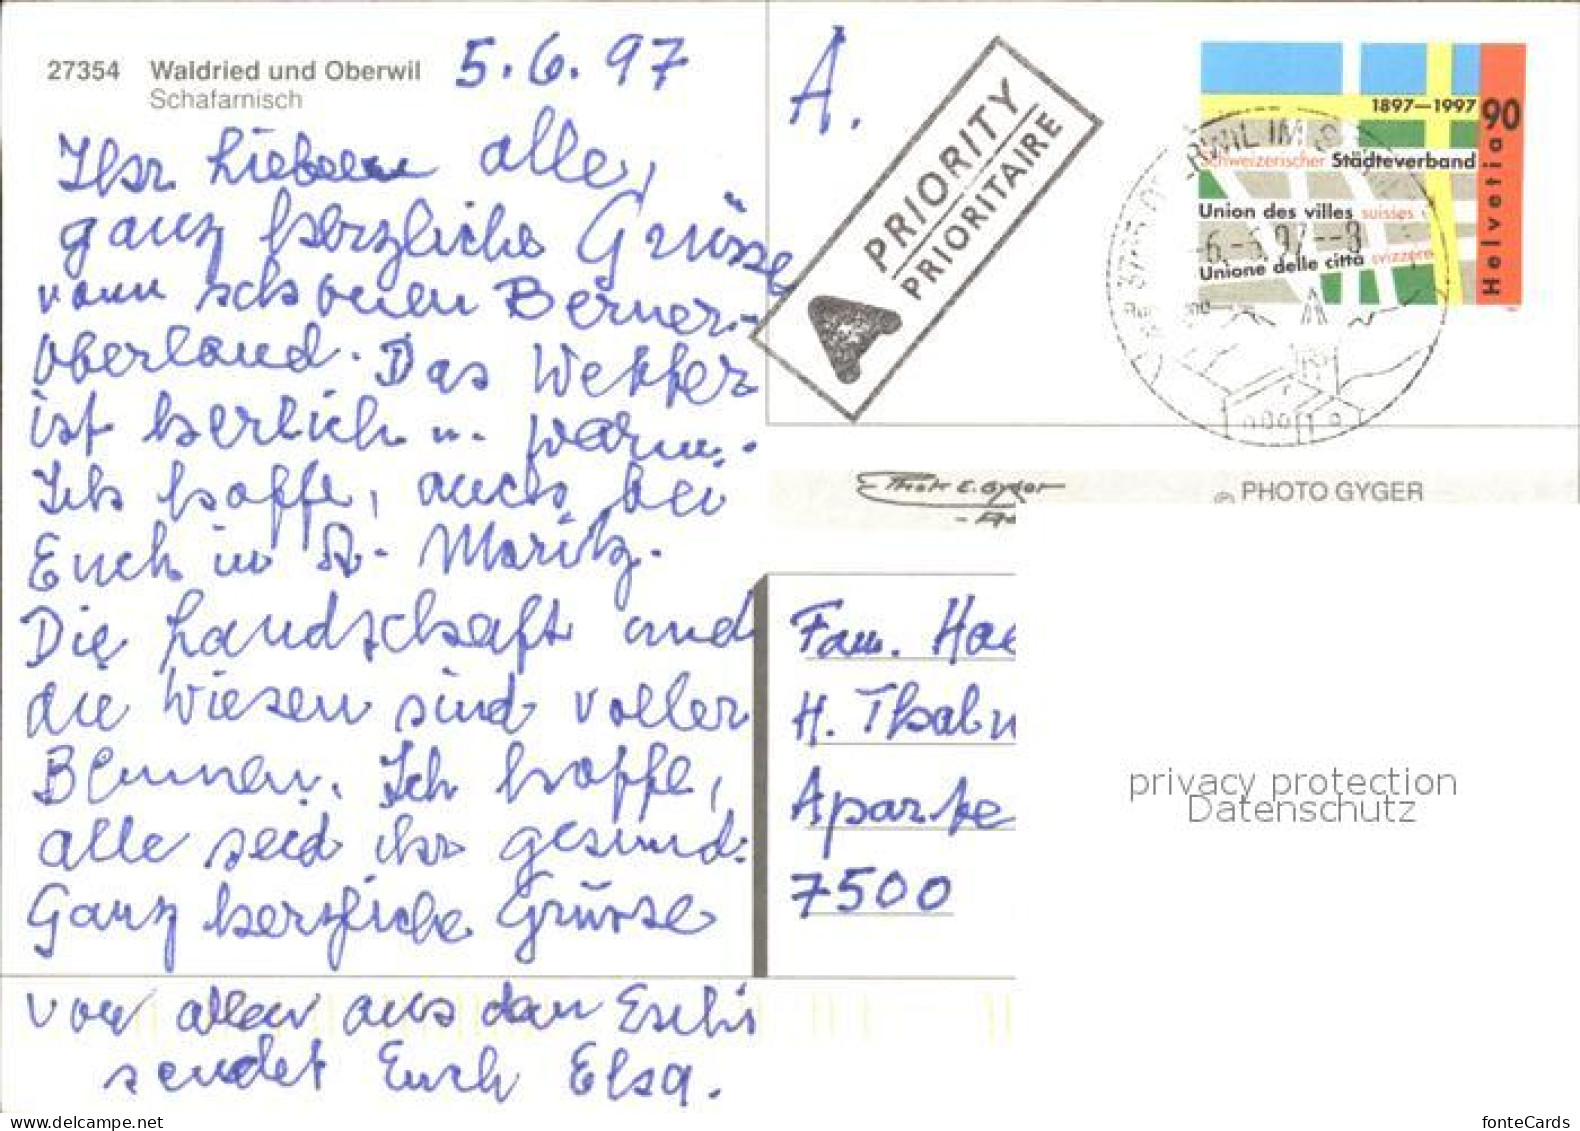 27354 Waldried und Oberwil
Schafarnisch
5.6.97
Ihr Lieben alle,
ganz herzliche Grüsse
vom schönen Berner-
oberland. Das Wetter
ist herlich u. warm.
Ich hoffe, auch bei
Euch in St. Moritz.
Die Landschaft und
die Wiesen sind voller
Blumen. Ich hoffe,
alle seid ihr gesund.
Ganz herzliche Grüsse
von allen aus dem
sendet Euch Elsa.
A.
A PRIORITY
PRIORITAIRE
1897–1997 90
Schweizerischer Städteverband
Union des villes suisses
Unione delle città svizzere
Helvetia
PHOTO GYGER
Fam.
H.
Aparte
7500
privacy protection
Datenschutz
fonteCards